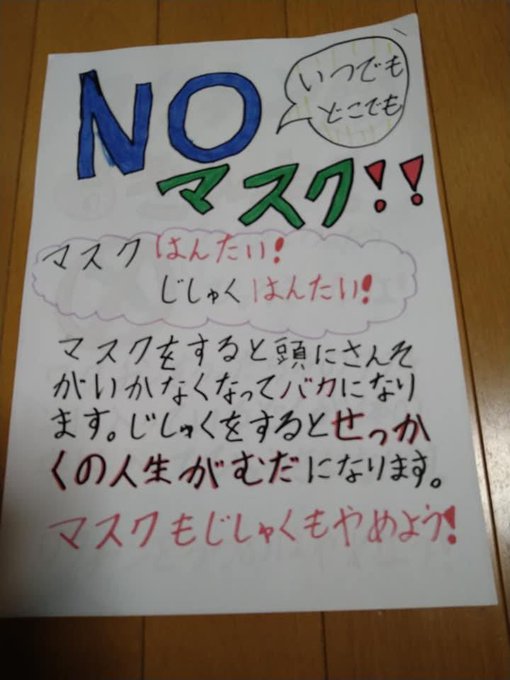 NO
いつでも
どこでも
マスク!!
マスク はんたい!
じしゅく はんたい!
マスクをすると頭にさんそ
がいかなくなってバカになり
ます。じしゅくをするとせっか
くの人生がむだになります。
マスクもじしゅくもやめよう!